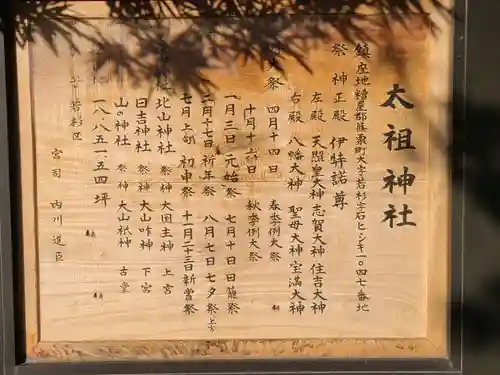 太祖神社
鎮座地 糟屋郡篠栗町大字若杉字石ヒシキ一〇四七番地
祭神 正殿 伊弉諾尊
左殿 天照皇大神 志賀大神 住吉大神
右殿 八幡大神 聖母大神 宝満大神
大祭 四月十四日 春季例大祭
十月十六日 秋季例大祭
一月三日 元始祭 七月十日 田籠祭
二月十七日 祈年祭 八月七日 七夕祭 上宮
七月上旬 初申祭 十一月二十三日 新嘗祭
北山神社 祭神 大国主神 上宮
日吉神社 祭神 大山咋神 下宮
山の神社 祭神 大山祇神 古堂
一八.八五一.五四坪
若杉区
宮司 内川道臣